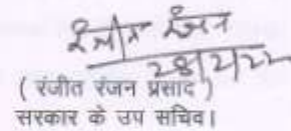 रंजीत रंजन
28/2/22
( रंजीत रंजन प्रसाद )
सरकार के उप सचिव।